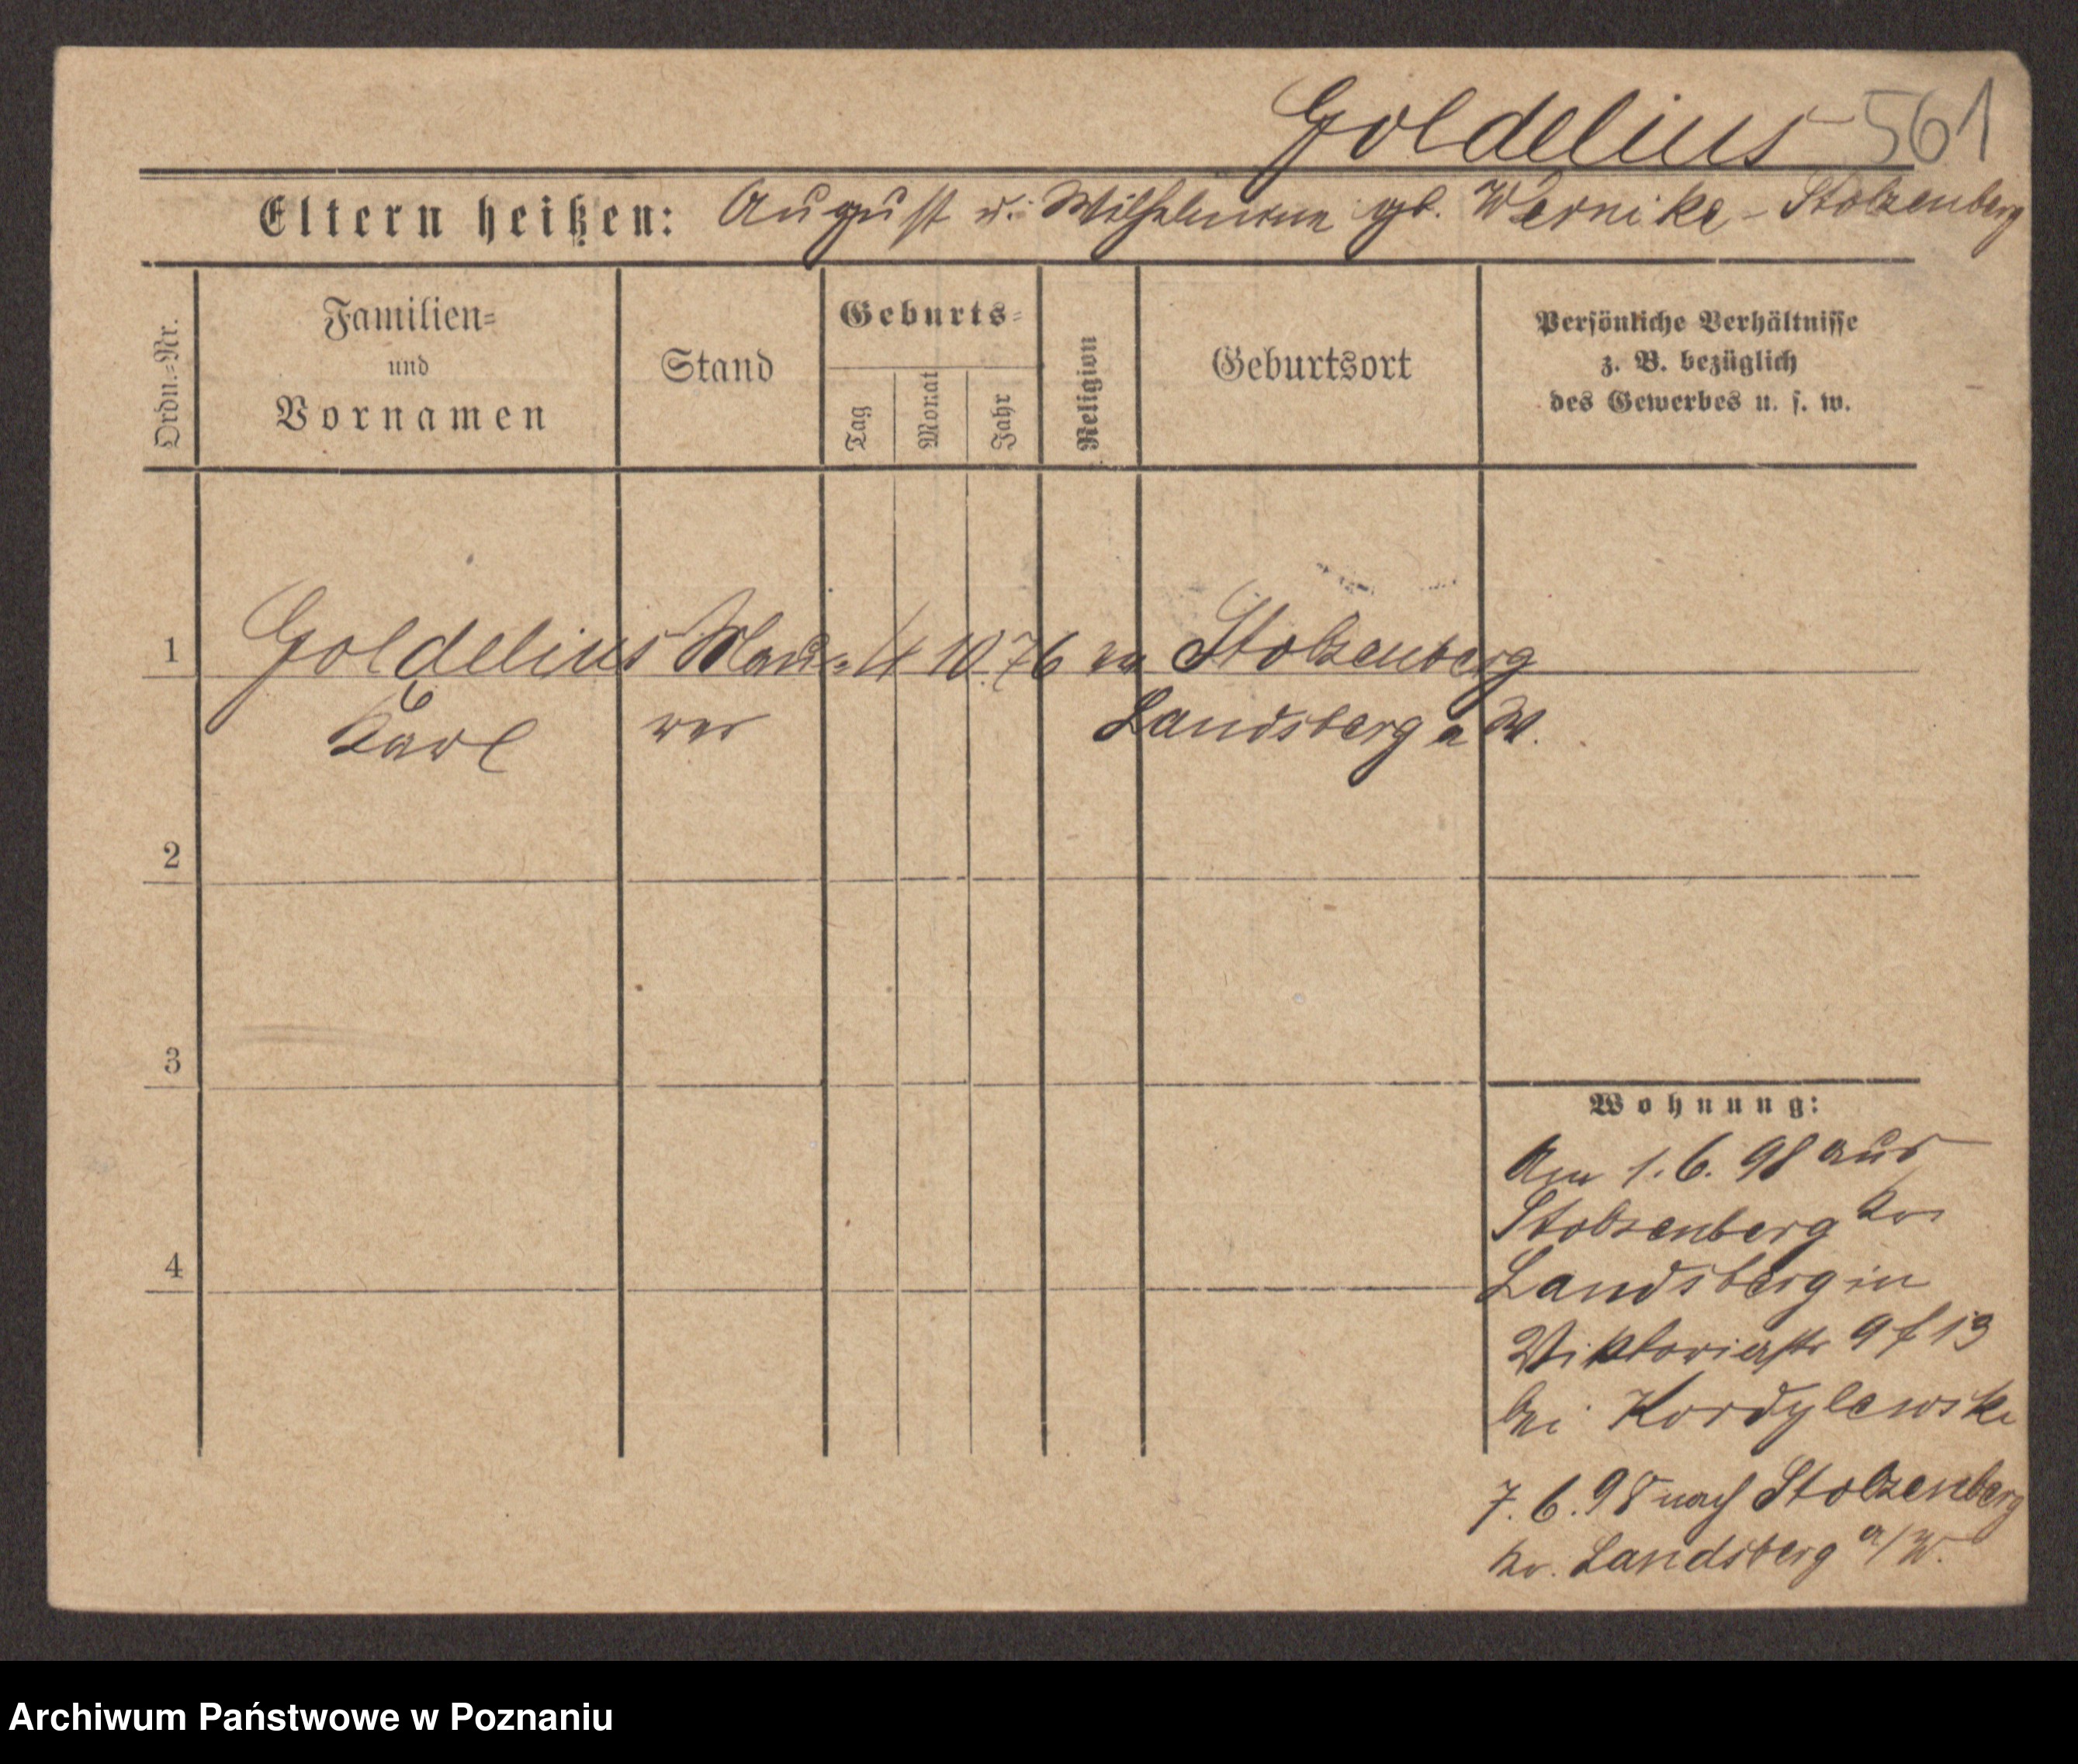 Goldelius 561
Eltern heißen: August u. Wilhelmine gb. Wernike - Stolzenberg
Ordn.=Nr.
Familien=
und
Vornamen
Stand
Geburts=
Tag
Monat
Jahr
Religion
Geburtsort
Persönliche Verhältnisse
z. B. bezüglich
des Gewerbes u. s. w.
1 Goldelius Mau= 4 10. 76 ev Stolzenberg
Karl rer Landsberg a W.
2
3
4
Wohnung:
Am 1. 6. 98 aus
Stolzenberg Kr
Landsberg in
Viktoriastr 9 f 13
bei Kordylewski
7. 6. 98 nach Stolzenberg
Kr. Landsberg a/W.
Archiwum Państwowe w Poznaniu